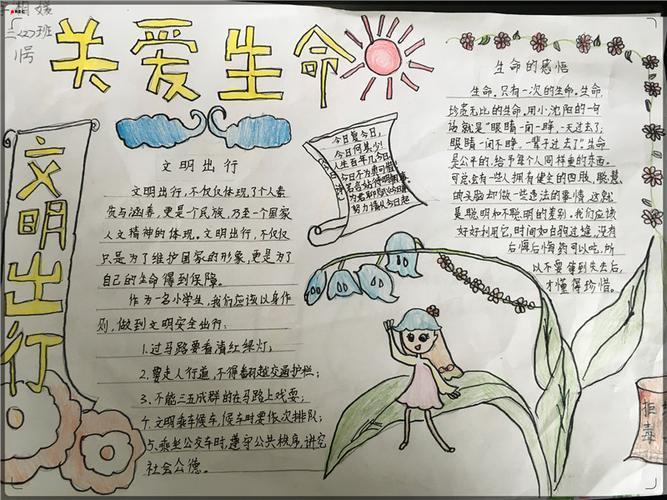 三(2)班
1号
关爱生命
文明出行
文明出行
文明出行,不仅仅体现了个人素
质与涵养,更是个民族,乃至一个国家
人文精神的体现。文明出行,不仅仅
只是为了维护国家的形象,更是为了
自己的生命得到保障。
作为一名小学生,我们应该以身作
则,做到文明安全出行:
1.过马路要看清红绿灯;
2.要走人行道,不得翻越交通护栏;
3、不能三五成群的在马路上戏耍;
4.文明乘车候车,候车时要依次排队;
5、乘坐公交车时,遵守公共秩序,讲究
社会公德。
今日复今日,
今日何其少!
人生百年几今日,
今日不为真可惜!
努力请从今日起
生命的感悟
生命。只有一次的生命。生命,
珍贵无比的生命,用小沈阳的一句
话就是"眼睛一闭一睁,一天过去了;
眼睛一闭不睁,一辈子过去了!"生命
是公平的,给予每个人同样重的东西。
可总会有一些人拥有健全的四肢,聪慧
的头脑却做一些违法的事情,这就
是聪明和不聪明的差别,我们应该
好好利用它,时间如白驹过隙,没有
后悔后悔药可以吃,所
以不要等到失去后,
才懂得珍惜。
拒
毒